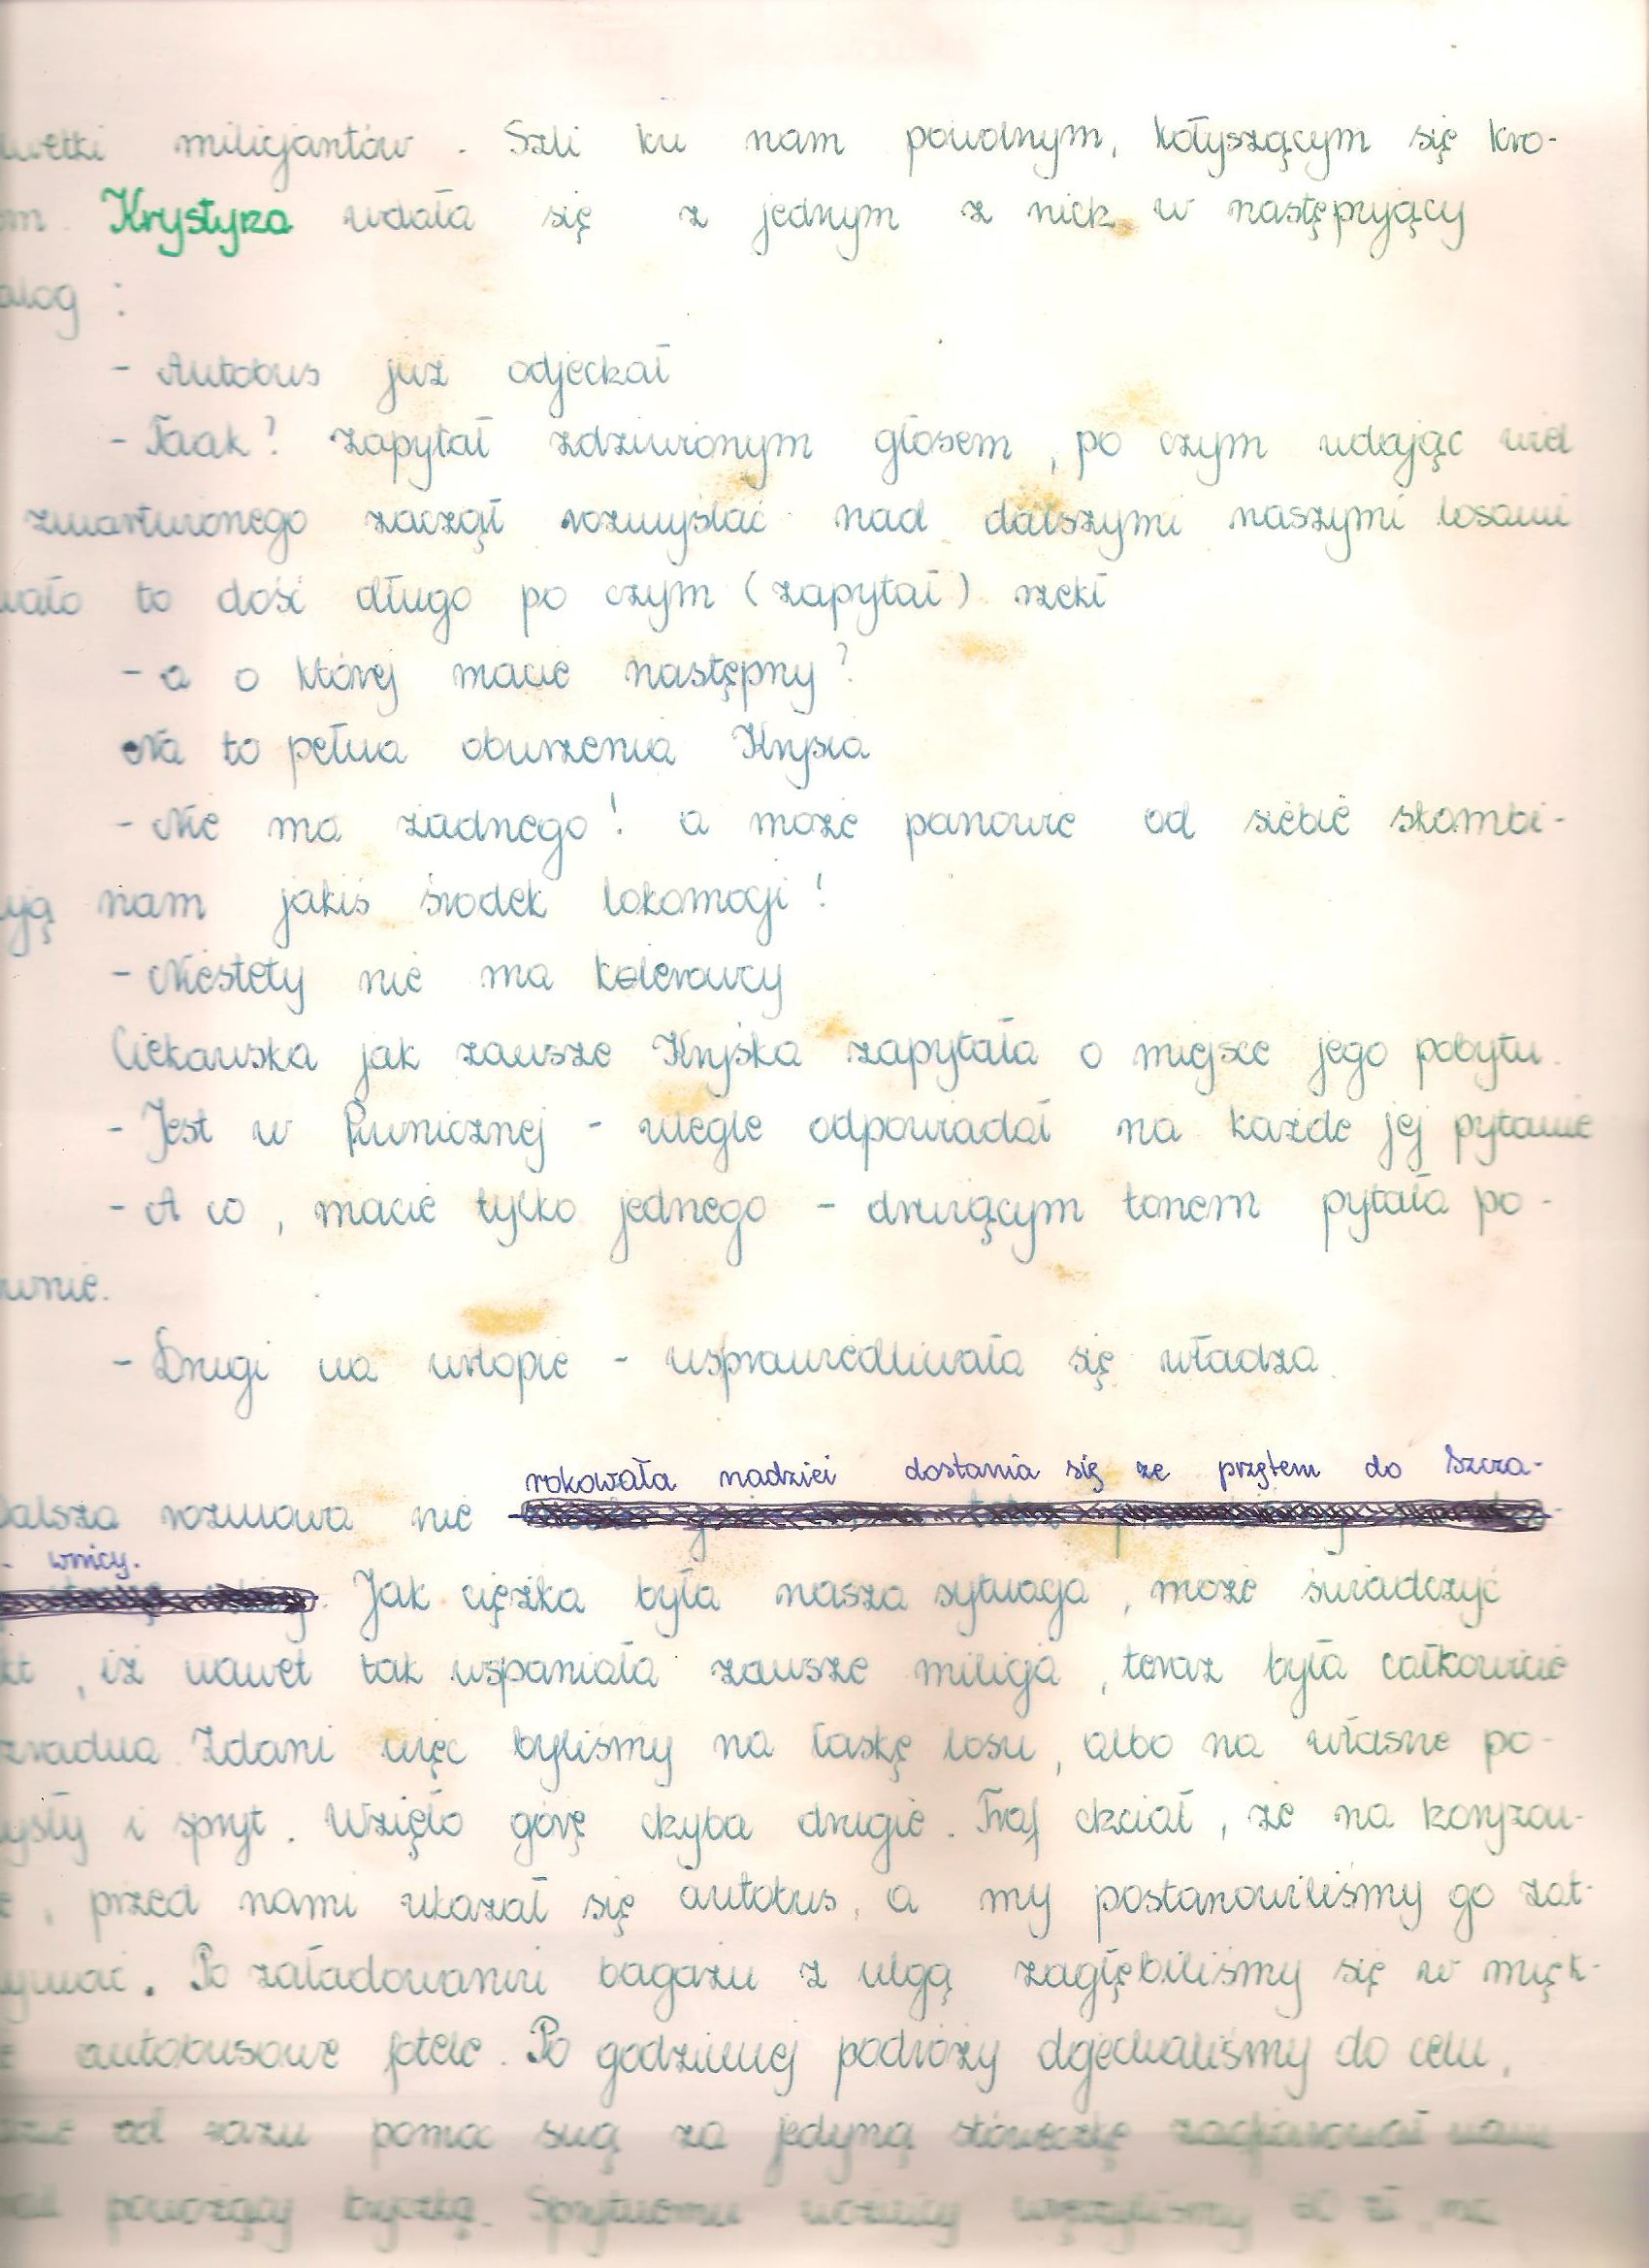 lwetki milicjantów. Szli ku nam powolnym, kołyszącym się kro-
om. Krystyna wdała się z jednym z nich w następujący
alog :
- Autobus już odjechał
- Taak? zapytał zdziwionym głosem, po czym udając wiel
zmartwionego zaczął rozmyślać nad dalszymi naszymi losami
wało to dość długo po czym (zapytał) rzekł
- a o której macie następny?
Na to pełna oburzenia Krysia
- Nie ma żadnego! a może panowie od siebie skombi-
ują nam jakiś środek lokomocji!
- Niestety nie ma kierowcy
Ciekawska jak zawsze Kryśka zapytała o miejsce jego pobytu.
- Jest w Piwnicznej - ulegle odpowiadał na każde jej pytanie
- A co, macie tylko jednego - drwiącym tonem pytała po-
ownie.
- Drugi na urlopie - usprawiedliwiała się władza.
rokowała nadziei dostania się ze sprzętem do Szcza-
Dalsza rozmowa nie
- wnicy.
Jak ciężka była nasza sytuacja, może świadczyć
kt, iż nawet tak wspaniała zawsze milicja, teraz była całkowicie
zradna. Zdani więc byliśmy na łaskę losu, albo na własne po-
ysły i spryt. Wzięło górę chyba drugie. Traf chciał, że na horyzon-
e, przed nami ukazał się autobus, a my postanowiliśmy go zat-
ymać. Po załadowaniu bagażu z ulgą zagłębiliśmy się w mięk-
e autobusowe fotele. Po godzinnej podróży dojechaliśmy do celu,
dzie od razu pomoc swą za jedyną stóweczkę zaofiarował nam
powożący bryczką. Sprytnemu woźnicy wręczyliśmy 60 zł, na